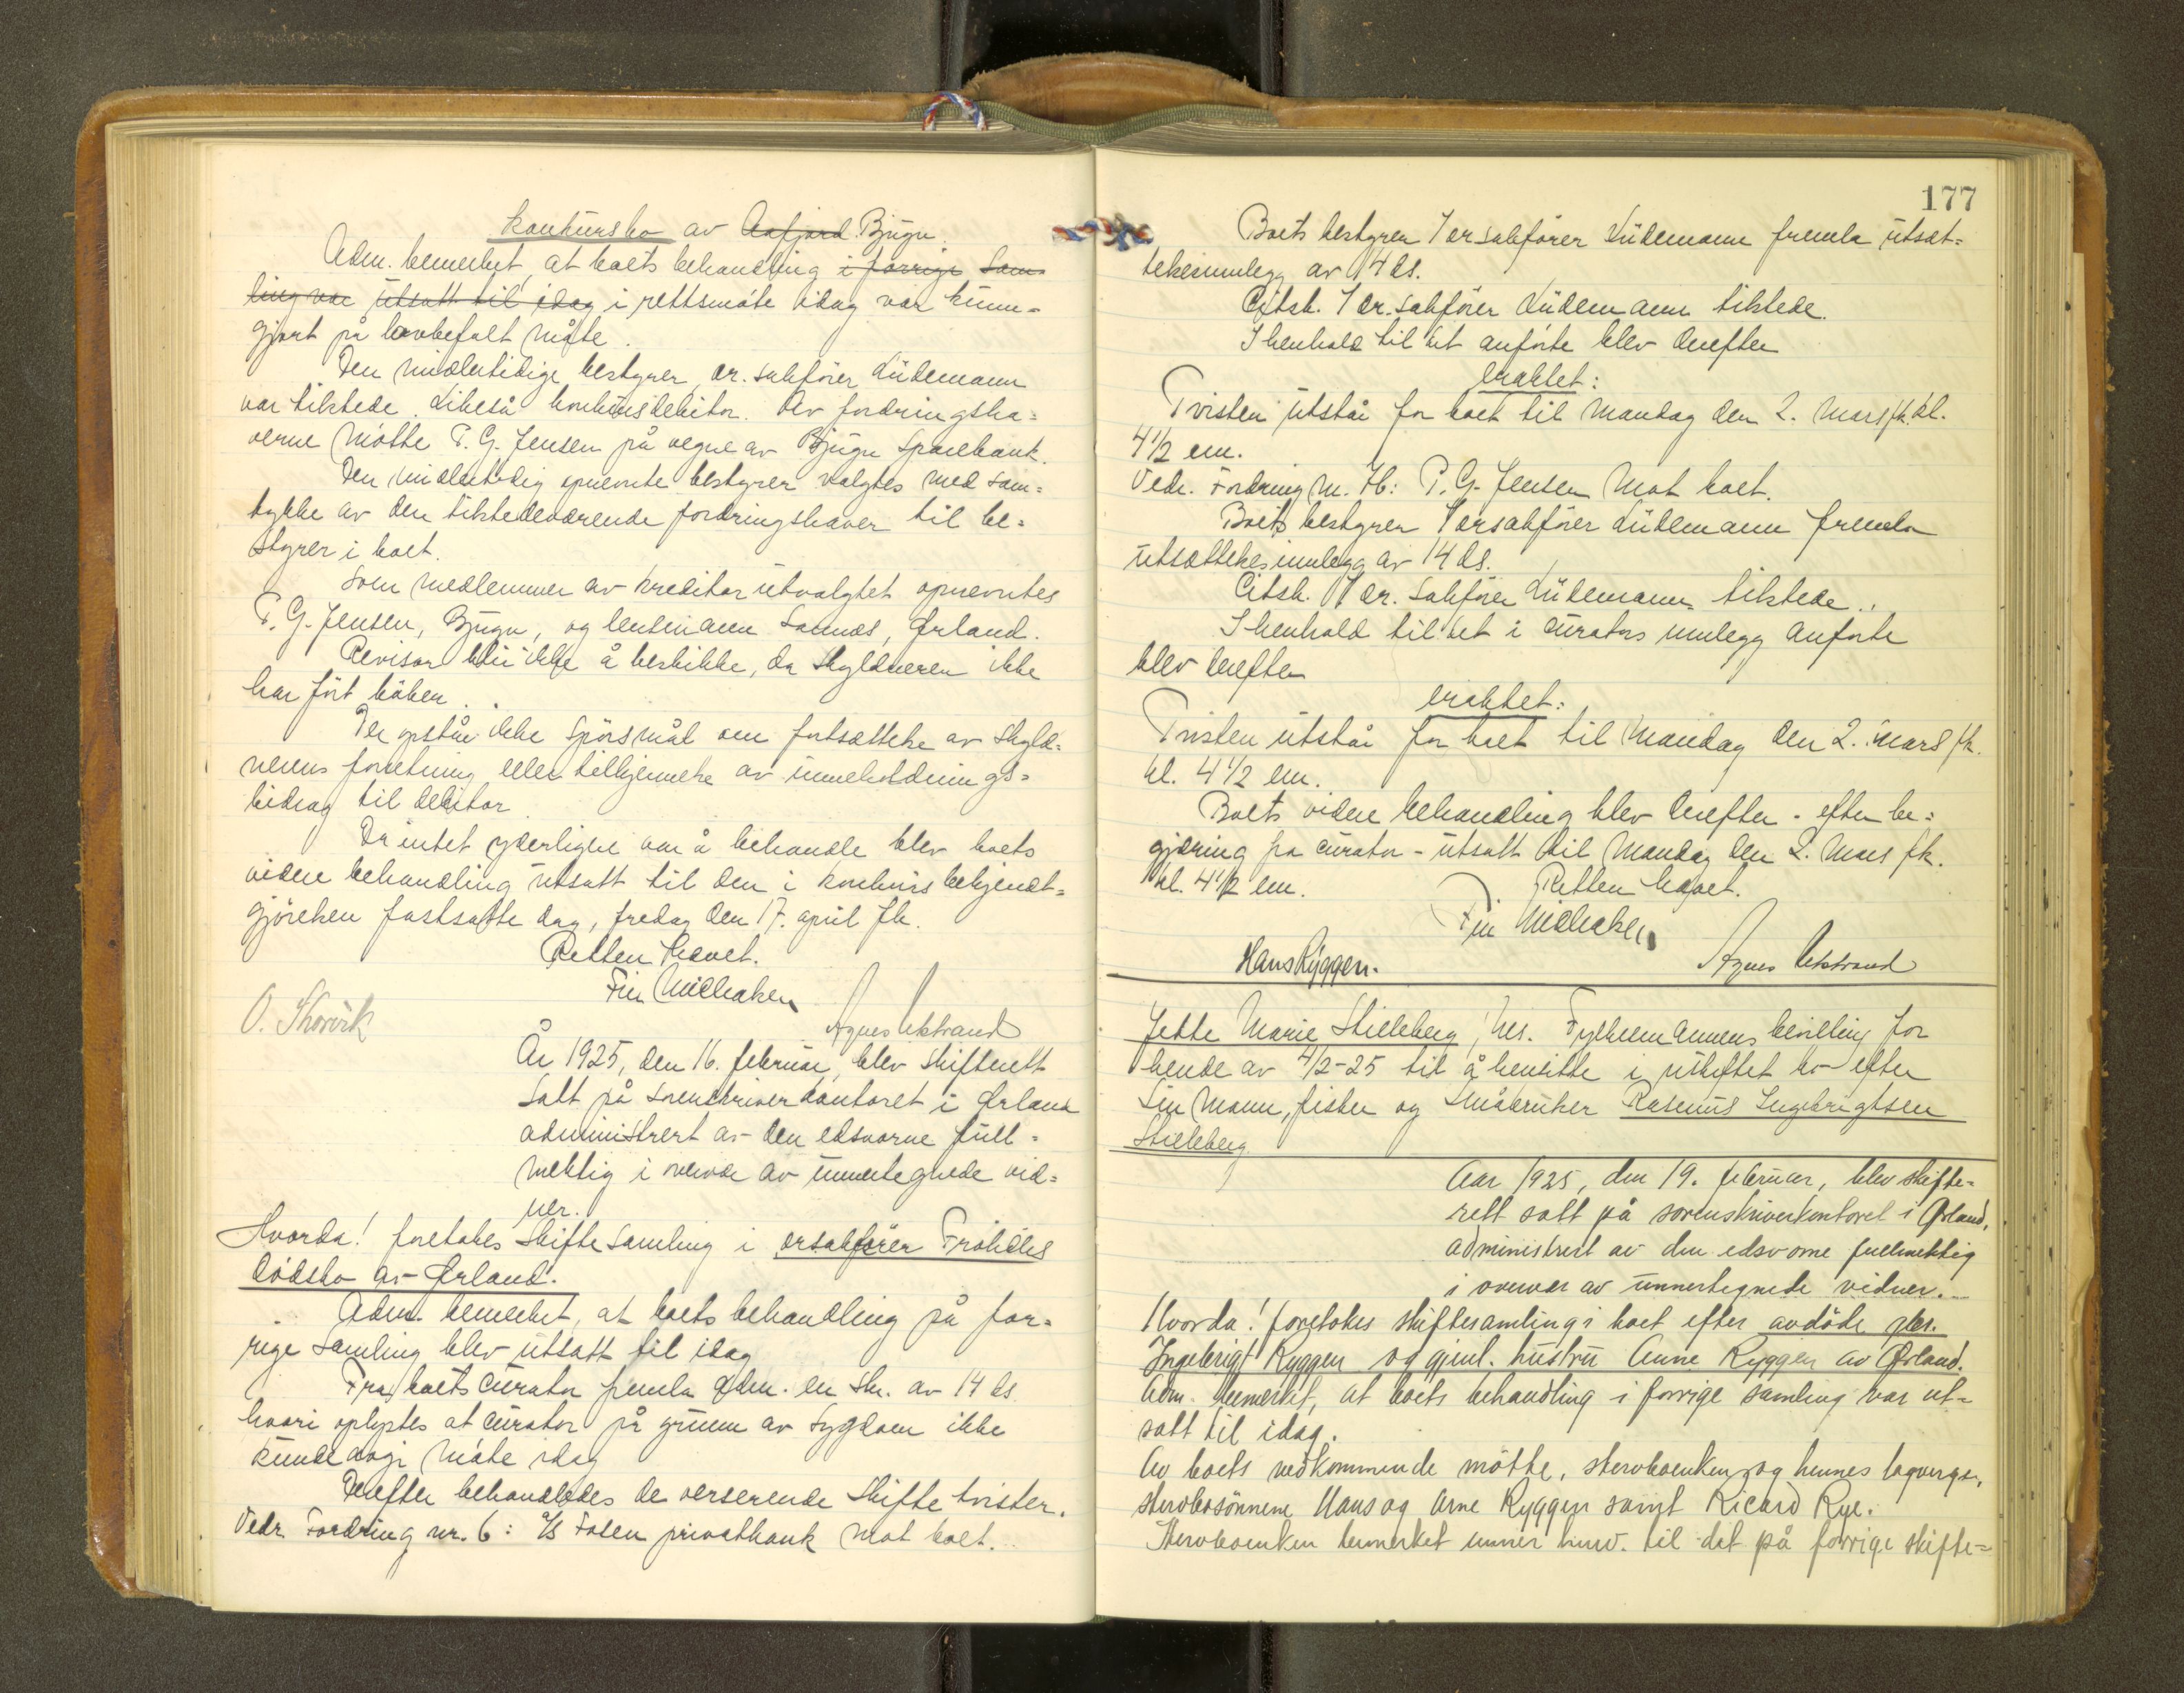 konkursbo av Aafjord Bjugn.
Adm. bemerket, at boets behandling i forrige sam-
ling var utsatt til idag i rettsmøte idag var kunn-
gjort på lovbefalt måte.
Den midlertidige bestyrer, or. sakfører Lüdemann
var tilstede. Likeså konkursdebitor. Av fordringsha-
verne møtte P. G. Jensen på vegne av Bjugn Sparebank.
Den midlertidig opnevnte bestyrer valgtes med sam-
tykke av den tilstedeværende fordringshaver til be-
styrer i boet.
Som medlemmer av kreditorutvalgtet opnevntes
P. G. Jensen, Bjugn, og lensmann Sannes, Ørland.
Revisor blir ikke å beskikke, da skyldneren ikke
har ført bøker.
Der opstår ikke spørsmål om fortsættelse av skyld-
nerens forretning eller tilkjennelse av underholdnings-
bidrag til debitor
Da intet yderligere var å behandle blev boets
videre behandling utsatt til den i konkursbekjendt-
gjørelsen fastsatte dag, fredag den 17. april fk.
Retten hevet.
Fin Michalsen
O. Skorvik
Agnes Ukstrand
År 1925, den 16. februar, blev skifterett
satt på sorenskriverkontoret i Ørland
administrert av den edsvorne full-
mektig i overvær av unnertegnede vid-
ner.
Hvorda! foretokes skiftesamling i orsakfører Frølichs
dødsbo av Ørland.
Adm. bemerket, at boets behandling på for-
rige samling blev utsatt til idag
Fra boets curator fremla adm. en skr. av 14 ds
hvori oplystes at curator på grunn av sygdom ikke
kunde møte idag
Derefter behandledes de verserende skiftetvister.
Vedr. Fordring nr. 6: A/S Fosen privatbank mot boet.
177
Boets bestyrer orsakfører Lüdemann fremla utsæt-
telsesinnlegg av 14 ds.
Citsk. or. sakfører Lüdemann tilstede.
I henhold til det anførte blev derefter
eraktet:
Tvisten utstår for boet til mandag den 2. mars fk. kl.
4 1/2 em.
Vedr. Fordring nr. P. G. Jensen mot boet.
Boets bestyrer orsakfører Lüdemann fremla
utsættelsesinnlegg av 14 ds.
Citsk. or. sakfører Lüdemann tilstede.
I henhold til det i curators innlegg anførte
blev derefter
eraktet:
Tvisten utstår for boet til mandag den 2. mars fk.
kl. 4 1/2 em.
Boets videre behandling blev derefter - efter be-
gjæring fra curator - utsatt til mandag den 2. mars fk.
kl. 4 1/2 em.
Retten hævet.
Fin Michalsen
Hans Ryggen.
Agnes Ukstrand
Jette Marie Stilleberg, hes. Fylkesmannens bevilling for
hende av 4/2-25 til å hensitte i uskiftet bo efter
sin mann, fisker og småbruker Rasmus Ingebrigtsen
Stilleberg
Aar 1925, den 19. februar, blev skifte-
rett satt på sorenskriverkontoret i Ørland,
administrert av den edsvorne fullmektig
i overvær av unnertegnede vidner.
Hvorda! foretokes skiftesamling i boet efter avdøde
Ingebrigt Ryggen og gjenl. hustru Anne Ryggen av Ørland.
Adm. bemerket, at boets behandling i forrige samling var ut-
satt til idag.
Av boets vedkommende møtte, stervboenken og hennes lagverge,
stervbosønnene Hans og Arne Ryggen samt Ricard Rye.
Stervboenken bemerket unner henv. til det på forrige skifte-